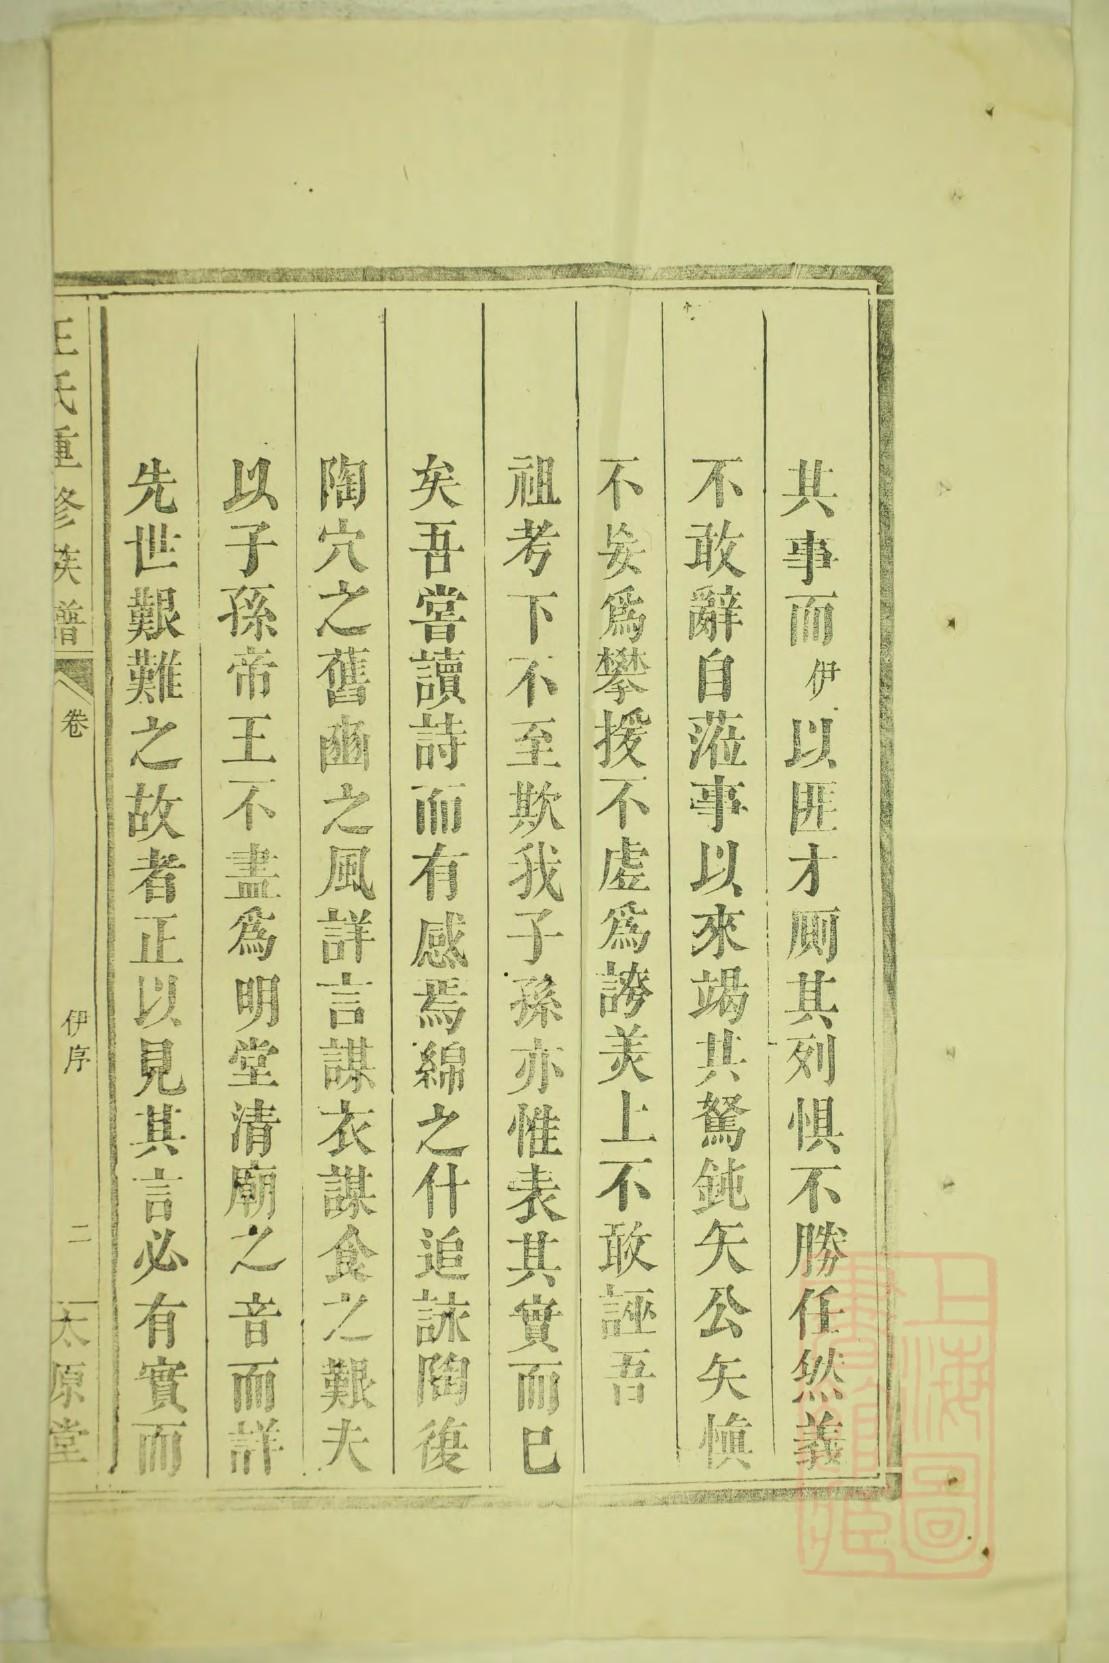 其事而伊以匪才厕其列惧不勝任然義
不敢辭自蒞事以來竭其駑鈍矢公矢慎
不妄爲攀援不虚爲誇美上不敢誣吾
祖考下不至欺我子孫亦惟表其實而已
矣吾嘗讀詩而有感焉綿之什追詠陶復
陶穴之舊豳之風詳言謀衣謀食之艱夫
以子孫帝王不盡爲明堂清廟之音而詳
先世艱難之故者正以見其言必有實而
王氏重修族譜 卷 伊序 二 太原堂
上海圖書館藏